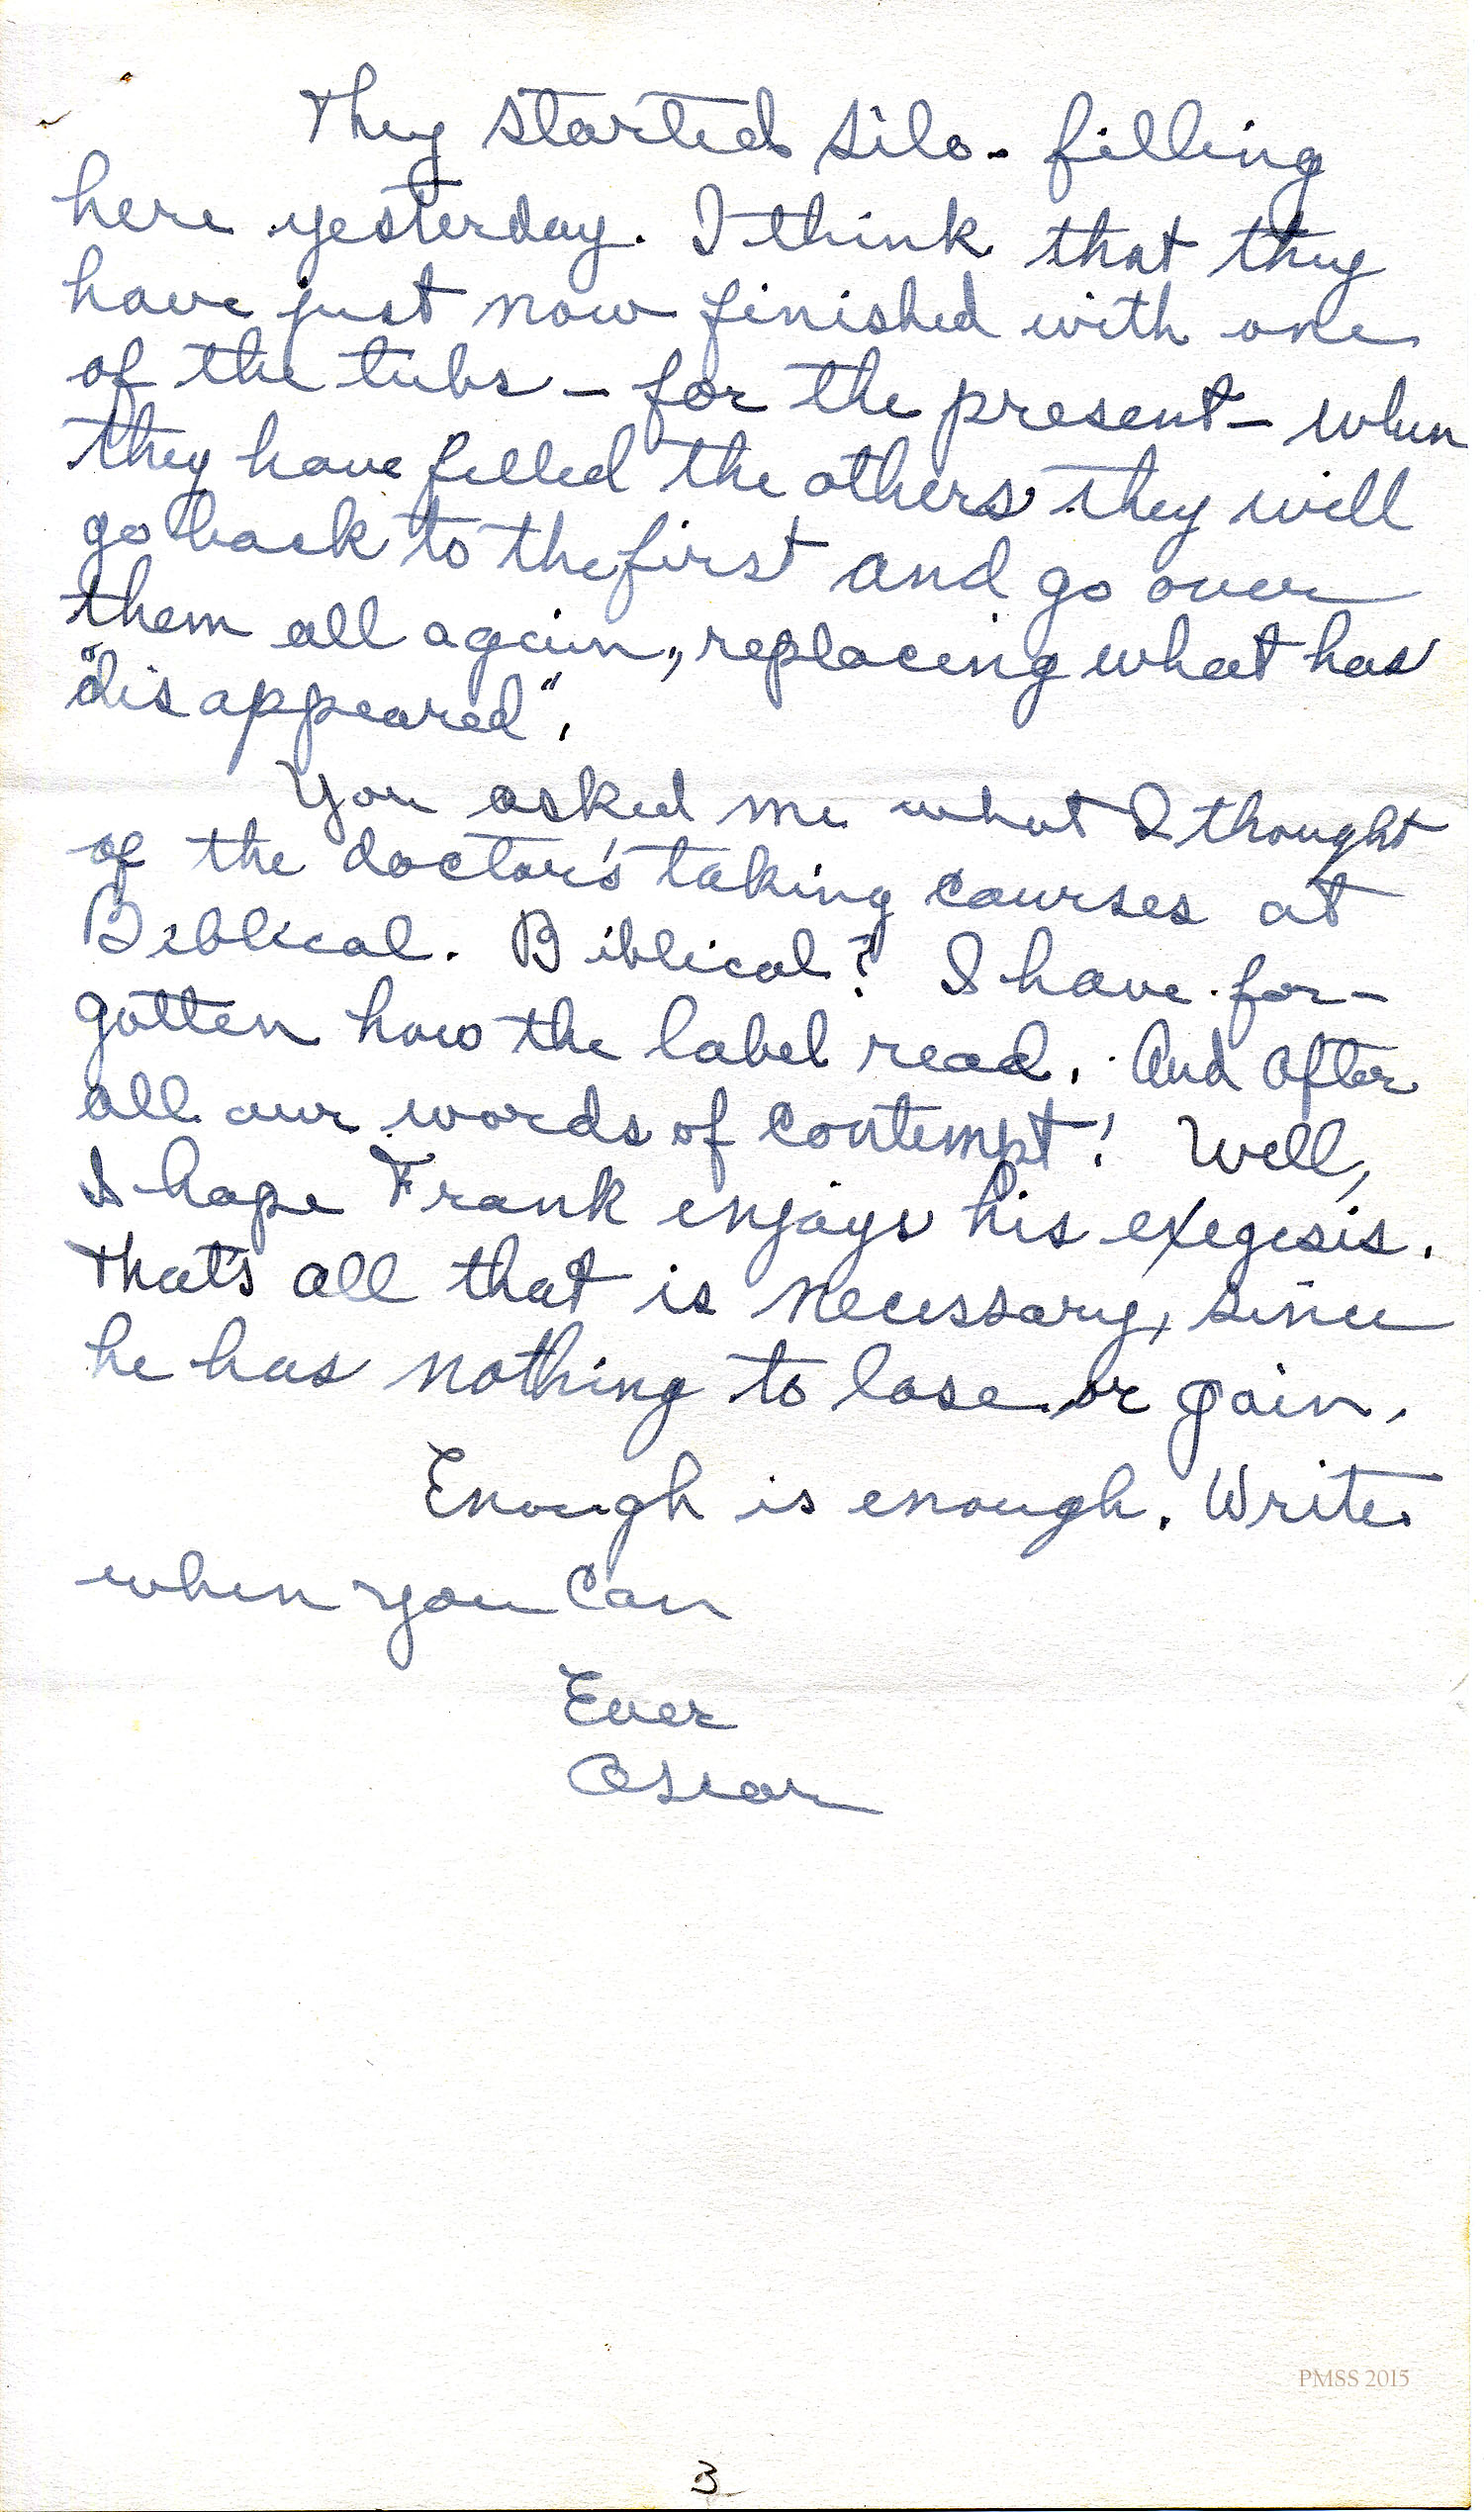 They started silo-filling
here yesterday. I think that they
have just now finished with one
of the tubs - for the present - when
they have filled the others they will
go back to the first and go over
them all again, replacing what has
"disappeared".
You asked me what I thought
of the doctor's taking courses at
Biblical. Biblical? I have for-
gotten how the label read. And after
all our words of contempt! Well,
I hope Frank enjoys his exegesis.
That's all that is necessary, since
he has nothing to lose or gain.
Enough is enough. Write
when you can
Ever
Oscar
PMSS 2015
3